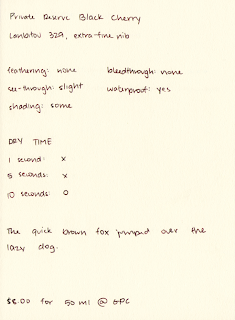 Private Reserve Black Cherry
Lanbitou 329, extra-fine nib
feathering: none bleedthrough: none
see-through: slight waterproof: yes
shading: some
DRY TIME
1 second: x
5 seconds: x
10 seconds: O
The quick brown fox jumped over the
lazy dog.
$8.00 for 50 ml @ GPC